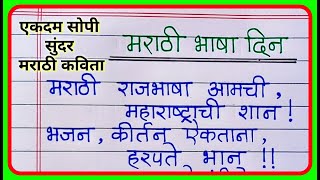 एकदम सोपी
सुंदर
मराठी कविता
मराठी भाषा दिन
मराठी राजभाषा आमची,
महाराष्ट्राची शान!
भजन, कीर्तन ऐकताना,
हरपते भान !!